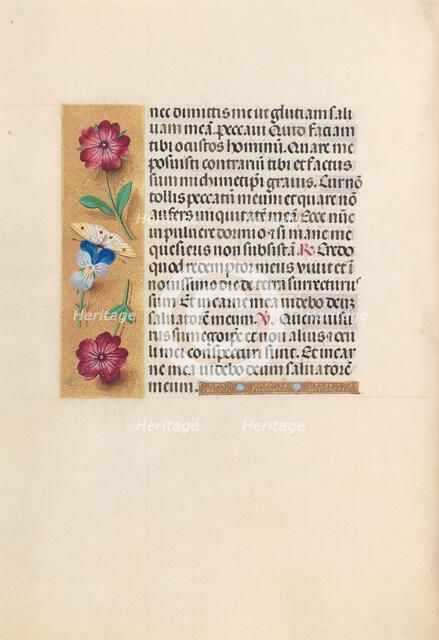 nec dimittis me ut glutiam sali
uam meā. peccaui Quid faciam
tibi o custos hominū. Quare me
posuisti contrariū tibi et factus
sum michimetipi grauis. Cur nō
tollis peccatū meum et quare nō
aufers iniquitatē meam. Ecce nūc
in puluere dormio et si mane me
quesieris non subsistā. R. Credo
quod redemptor meus viuit et ī
nouissimo die de terra surrecturꝰ
sum Et in carne mea uidebo deū
saluatorē meum. V. Quem uisu
rus sum ego ipse et non alius et ocu
li mei conspecturi sunt. Et in car
ne mea uidebo deum saluatorē
meum.
Heritage Heritage
Heritage Heritage
Heritage Heritage